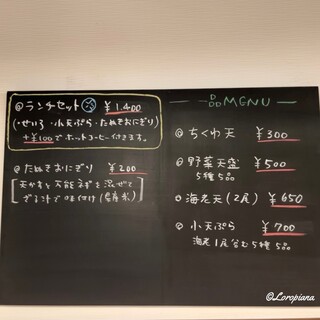 @ランチセット ¥1.400
(・せいろ ・小天ぷら・たぬきおにぎり)
+¥100でホットコーヒー付きます。
@たぬきおにぎり ¥200
[天かすと万能ネギを混ぜて
ざる汁で味付け(農産米)]
一品MENU
@ちくわ天 ¥300
@野菜天盛 ¥500
5種5品
@海老天(2尾) ¥650
@小天ぷら ¥700
海老1尾含む5種5品
@Loropiana